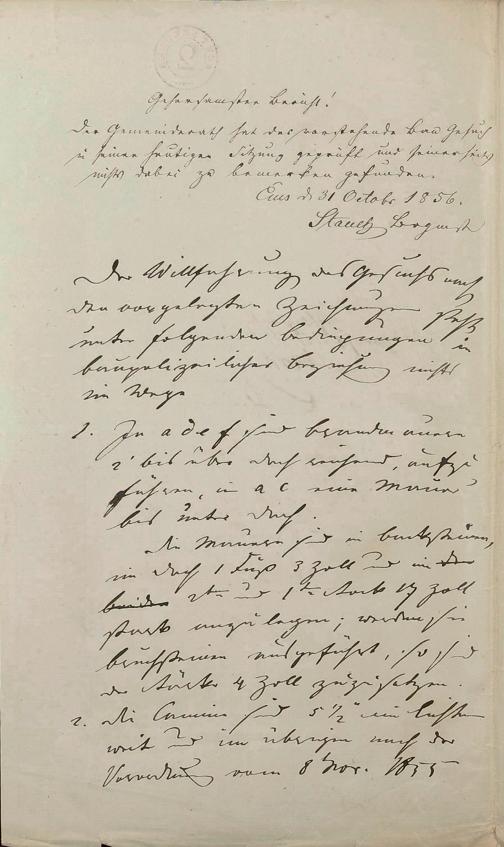 Gehorsamster Bericht!
Der Gemeinderath hat das vorstehende Bau Gesuch
in seiner heutigen Sitzung geprüft und seinerseits
nichts dabei zu bemerken gefunden.
Ems d 31 Octobr 1856.
Der Willfahrung des Gesuchs nach
den vorgelegten Zeichnungen steht
unter folgenden Bedingungen in
baupolizeilicher Beziehung nichts
im Wege
1. In a d e f sind Brandmauern
2' bis über Dach reichend, aufzu
führen, in a c eine Mauer
bis unter Dach.
Die Mauern sind in Backsteinen,
im Dach 1 Fuß 3 Zoll und im den
beiden 2ten und 1ten Stock 17 Zoll
stark anzulegen; werden sie
Bruchsteinen ausgeführt, so sind
der Stärke 4 Zoll zuzusetzen.
2. Die Camine sind 5 1/2" im Lichten
weit und im übrigen nach der
Verordnung vom 8 Nov. 1855